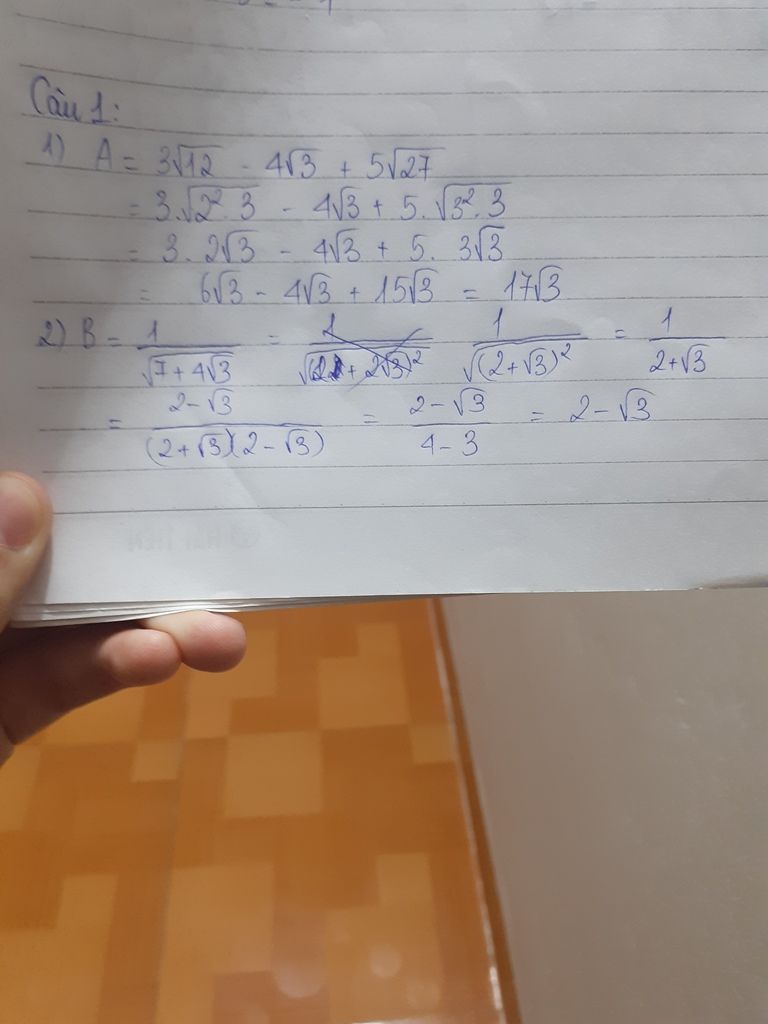 Câu 1:
1) A = 3√12 - 4√3 + 5√27
= 3.√(2².3) - 4√3 + 5.√(3².3)
= 3.2√3 - 4√3 + 5.3√3
= 6√3 - 4√3 + 15√3 = 17√3
2) B = 1/√(7+4√3) = 1/√((2+√3)²) = 1/(2+√3)
= (2-√3)/((2+√3)(2-√3)) = (2-√3)/(4-3) = 2-√3